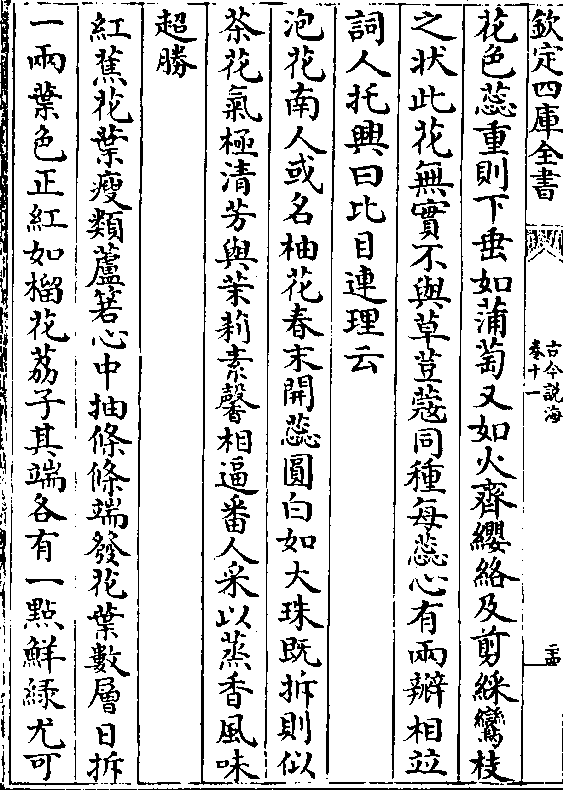 欽定四庫全書
古今說海
卷十一
二十四
花色蕊重則下垂如蒲萄又如火齊纓絡及剪綵鸞枝
之狀此花無實不與草荳蔻同種每蕊心有兩瓣相竝
詞人托興曰比目連理云
泡花南人或名柚花春末開蕊圓白如大珠既拆則似
茶花氣極清芳與茉莉素馨相逼番人采以蒸香風味
超勝
紅蕉花葉瘦類蘆箬心中抽條條端發花葉數層日拆
一兩葉色正紅如榴花荔子其端各有一點鮮綠尤可